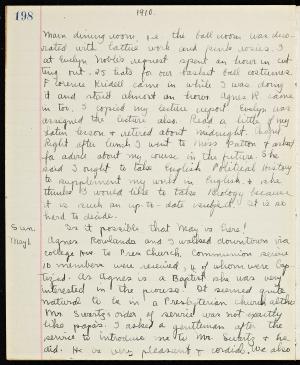 198
1910.
main dining room, i.e. the ball room was deco-
rated with lattice work and pink roses. I
at Evelyn Noble's request spent an hour in cut-
ting out 25 hats for our basket ball costumes.
Florence Kridell came in while I was doing
it and stayed almost an hour. Agnes R. came
in too. I copied my lecture report. Evelyn was
assigned the lecture also. Read a little of my
Latin lesson & retired about midnight.
Right after lunch I went to Miss Patton & asked
for advice about my course in the future. She
said I ought to take English Political History
to supplement my work in English, & she
thinks I would like to take Biology because
it is such an up-to-date subject. It is so
hard to decide.
Sun.
May 1.
Is it possible that May is here!
Agnes Rowlands and I walked downtown via
college Ave to Pres Church. Communion service
10 members were received, 4 of whom were bap-
tized. As Agnes is a Baptist she was very
interested in the process. It seemed quite
natural to be in a Presbyterian church altho
Mr. Swartz's order of service was not exactly
like papa's. I asked a gentleman after the
service to introduce me to Mr. Swartz & he
did. He is very pleasant & cordial. We also